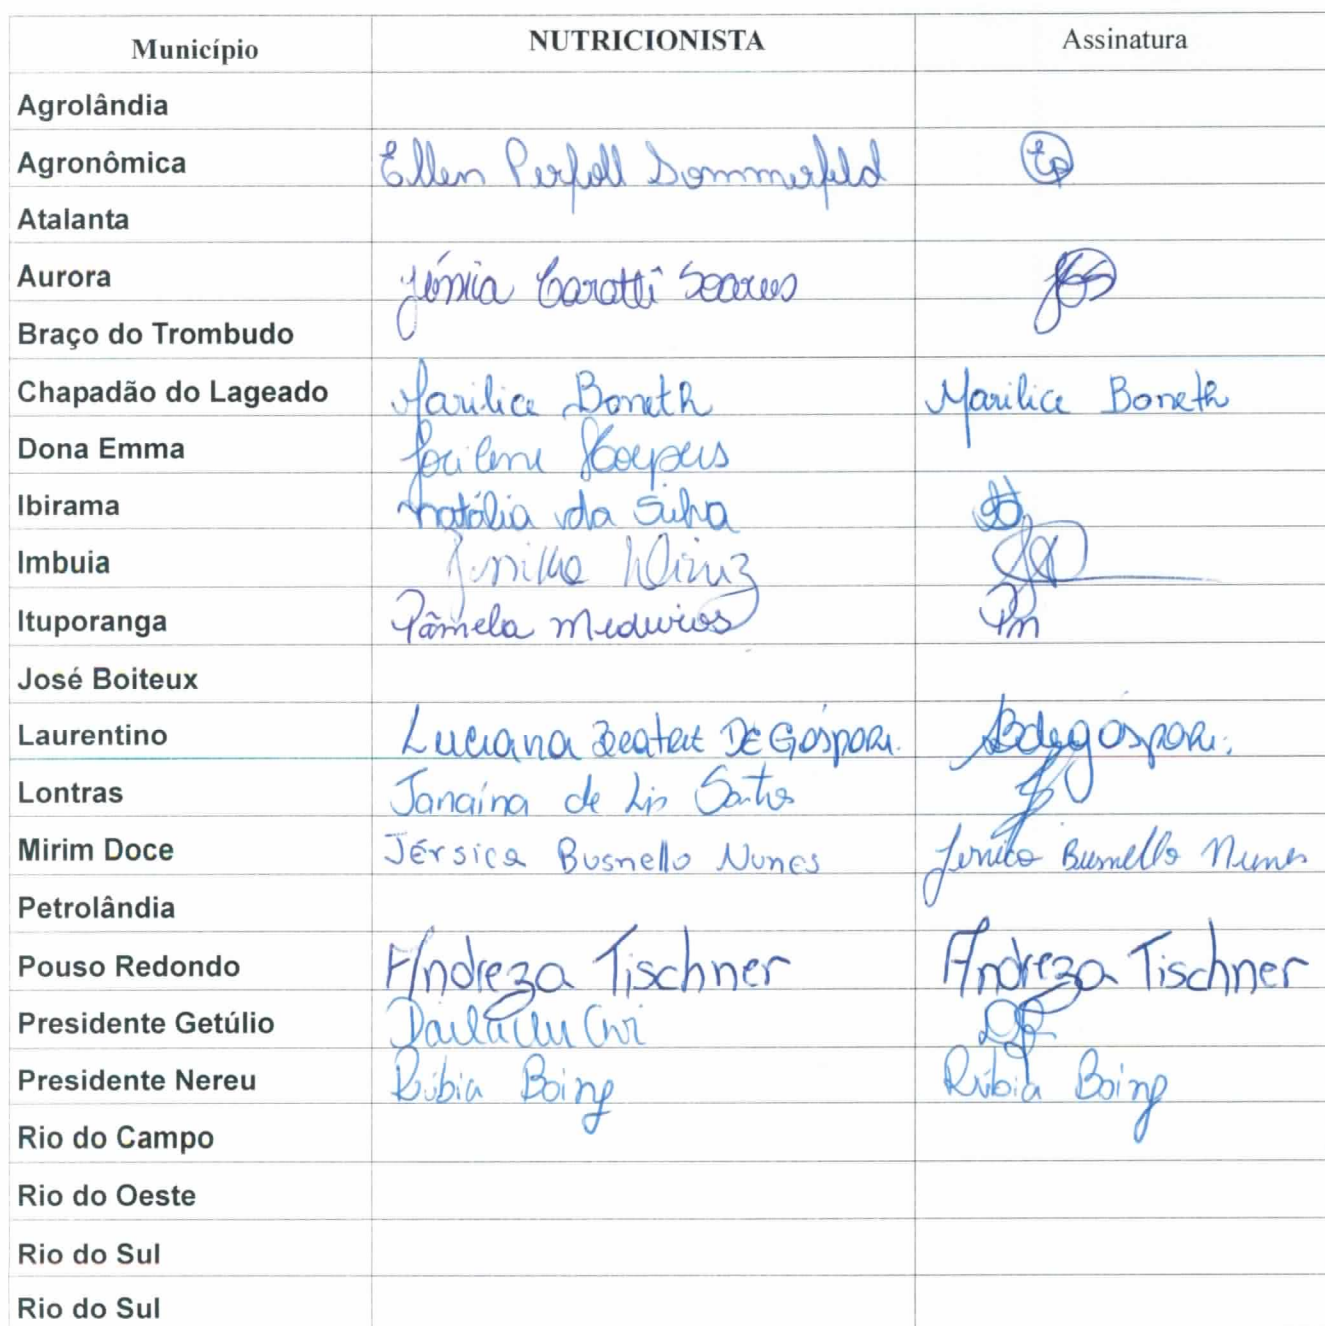 Município NUTRICIONISTA Assinatura
Agrolândia
Agronômica Ellen Perfoll Sommerfeld
Atalanta
Aurora Caratti Soares
Braço do Trombudo
Chapadão do Lageado Marilice Boneth Marilice Boneth
Dona Emma
Ibirama Natália da Silva
Imbuia
Ituporanga Pâmela Medeiros Pm
José Boiteux
Laurentino Luciana DE Gáspari
Lontras Janaína de Lis Santos
Mirim Doce Jéssica Busnello Nunes Jéssica Busnello Nunes
Petrolândia
Pouso Redondo Andreza Tischner Andreza Tischner
Presidente Getúlio
Presidente Nereu Rúbia Boing Rúbia Boing
Rio do Campo
Rio do Oeste
Rio do Sul
Rio do Sul